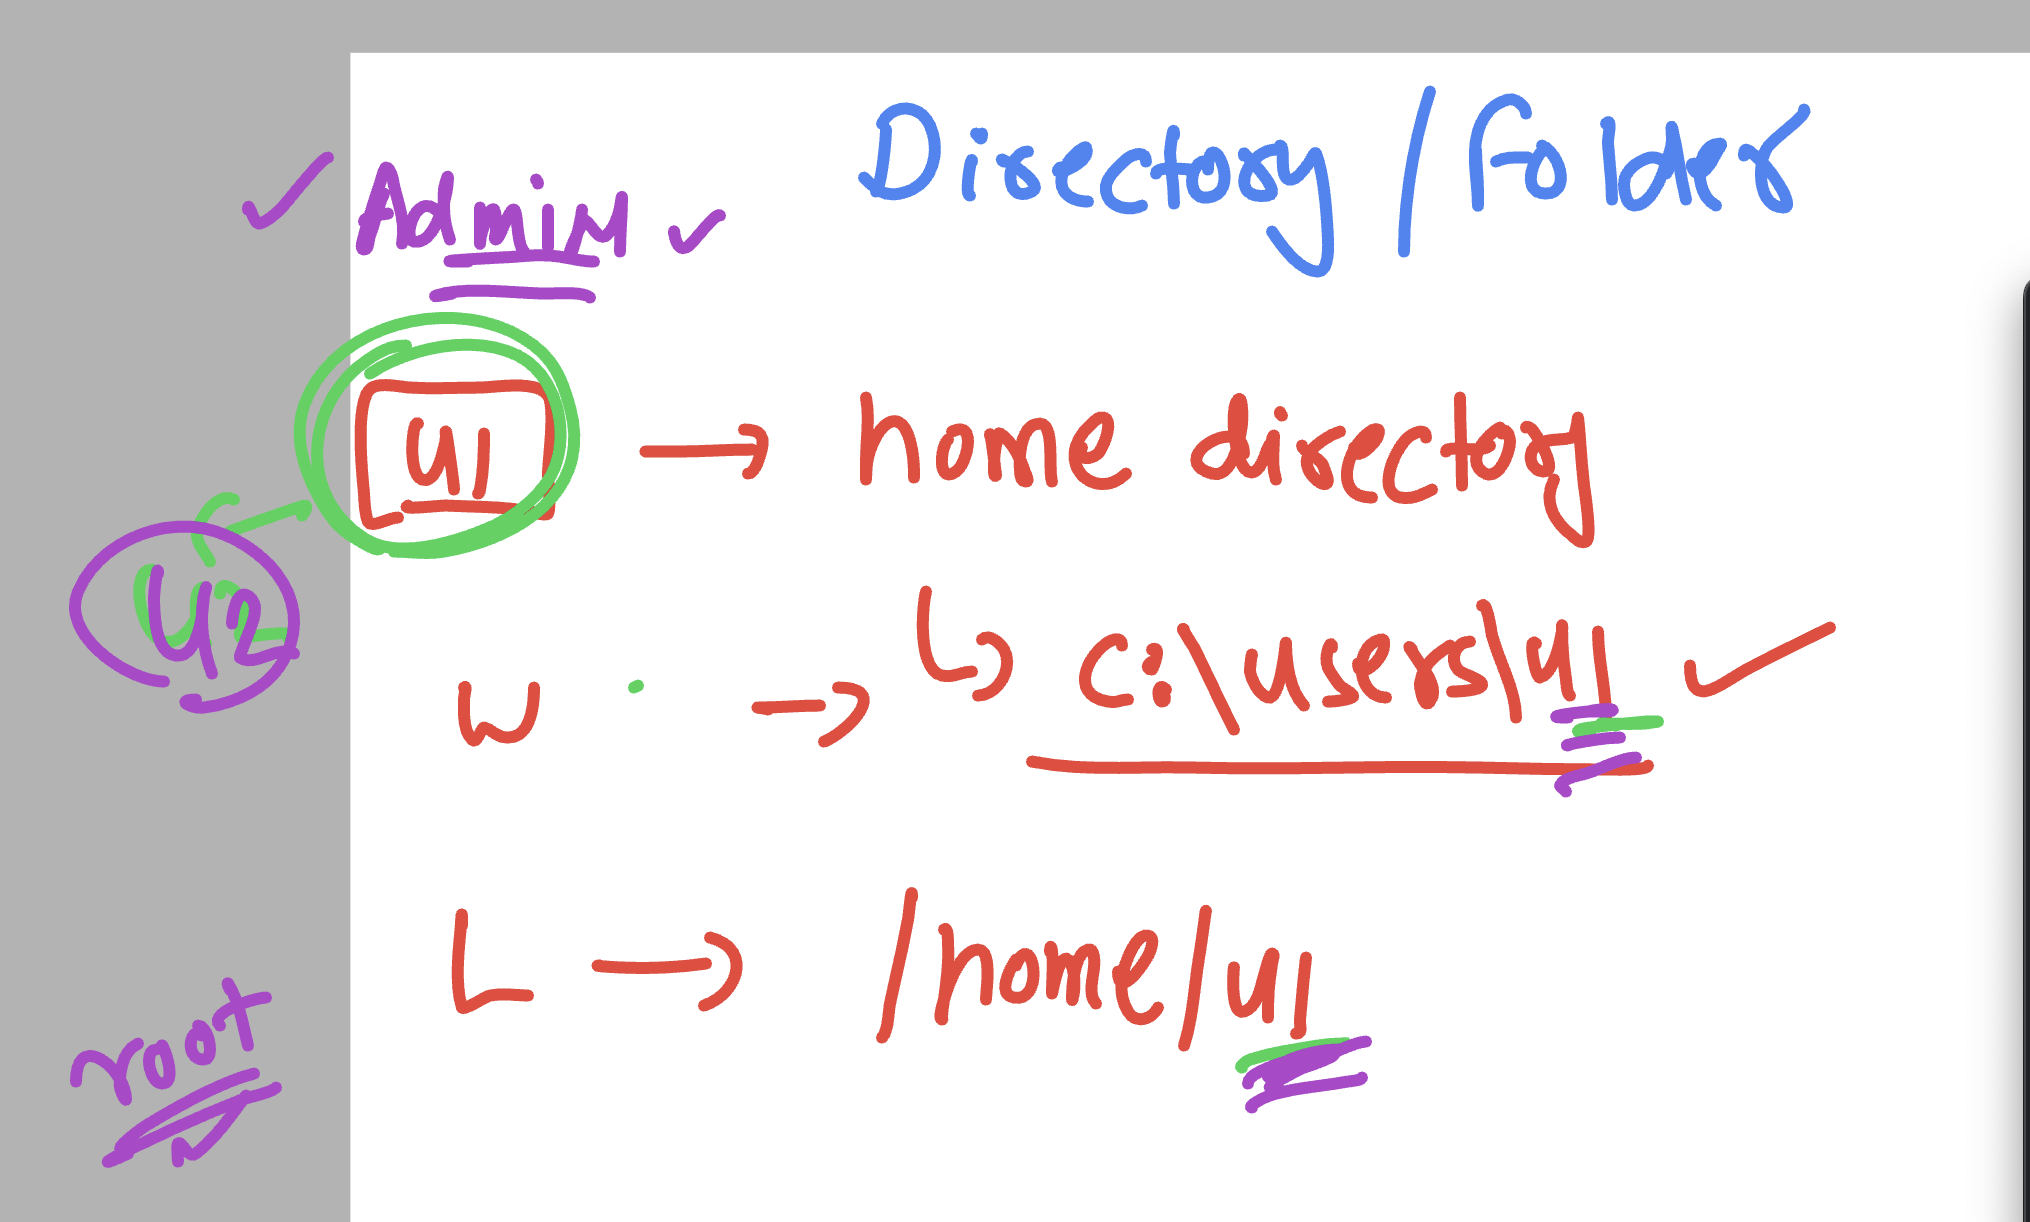 Directory / Folder
Admin
u1 → home directory
u2
W → ↳ c:\users\u1
L → /home/u1
root